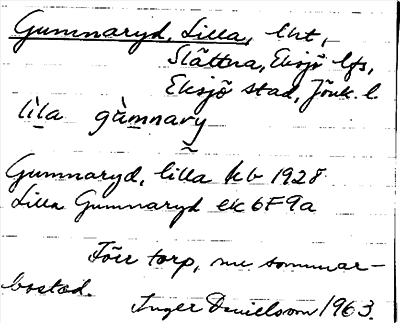 Gummaryd, Lilla, lht,
Slättna, Eksjö lfs,
Eksjö stad, Jönk. l.
lìl̲a gàm̲nary
Gummaryd, lilla kb 1928
Lilla Gummaryd ek 6F9a
Förr torp, nu sommar-
bostad.
Inger Danielsson 1963.